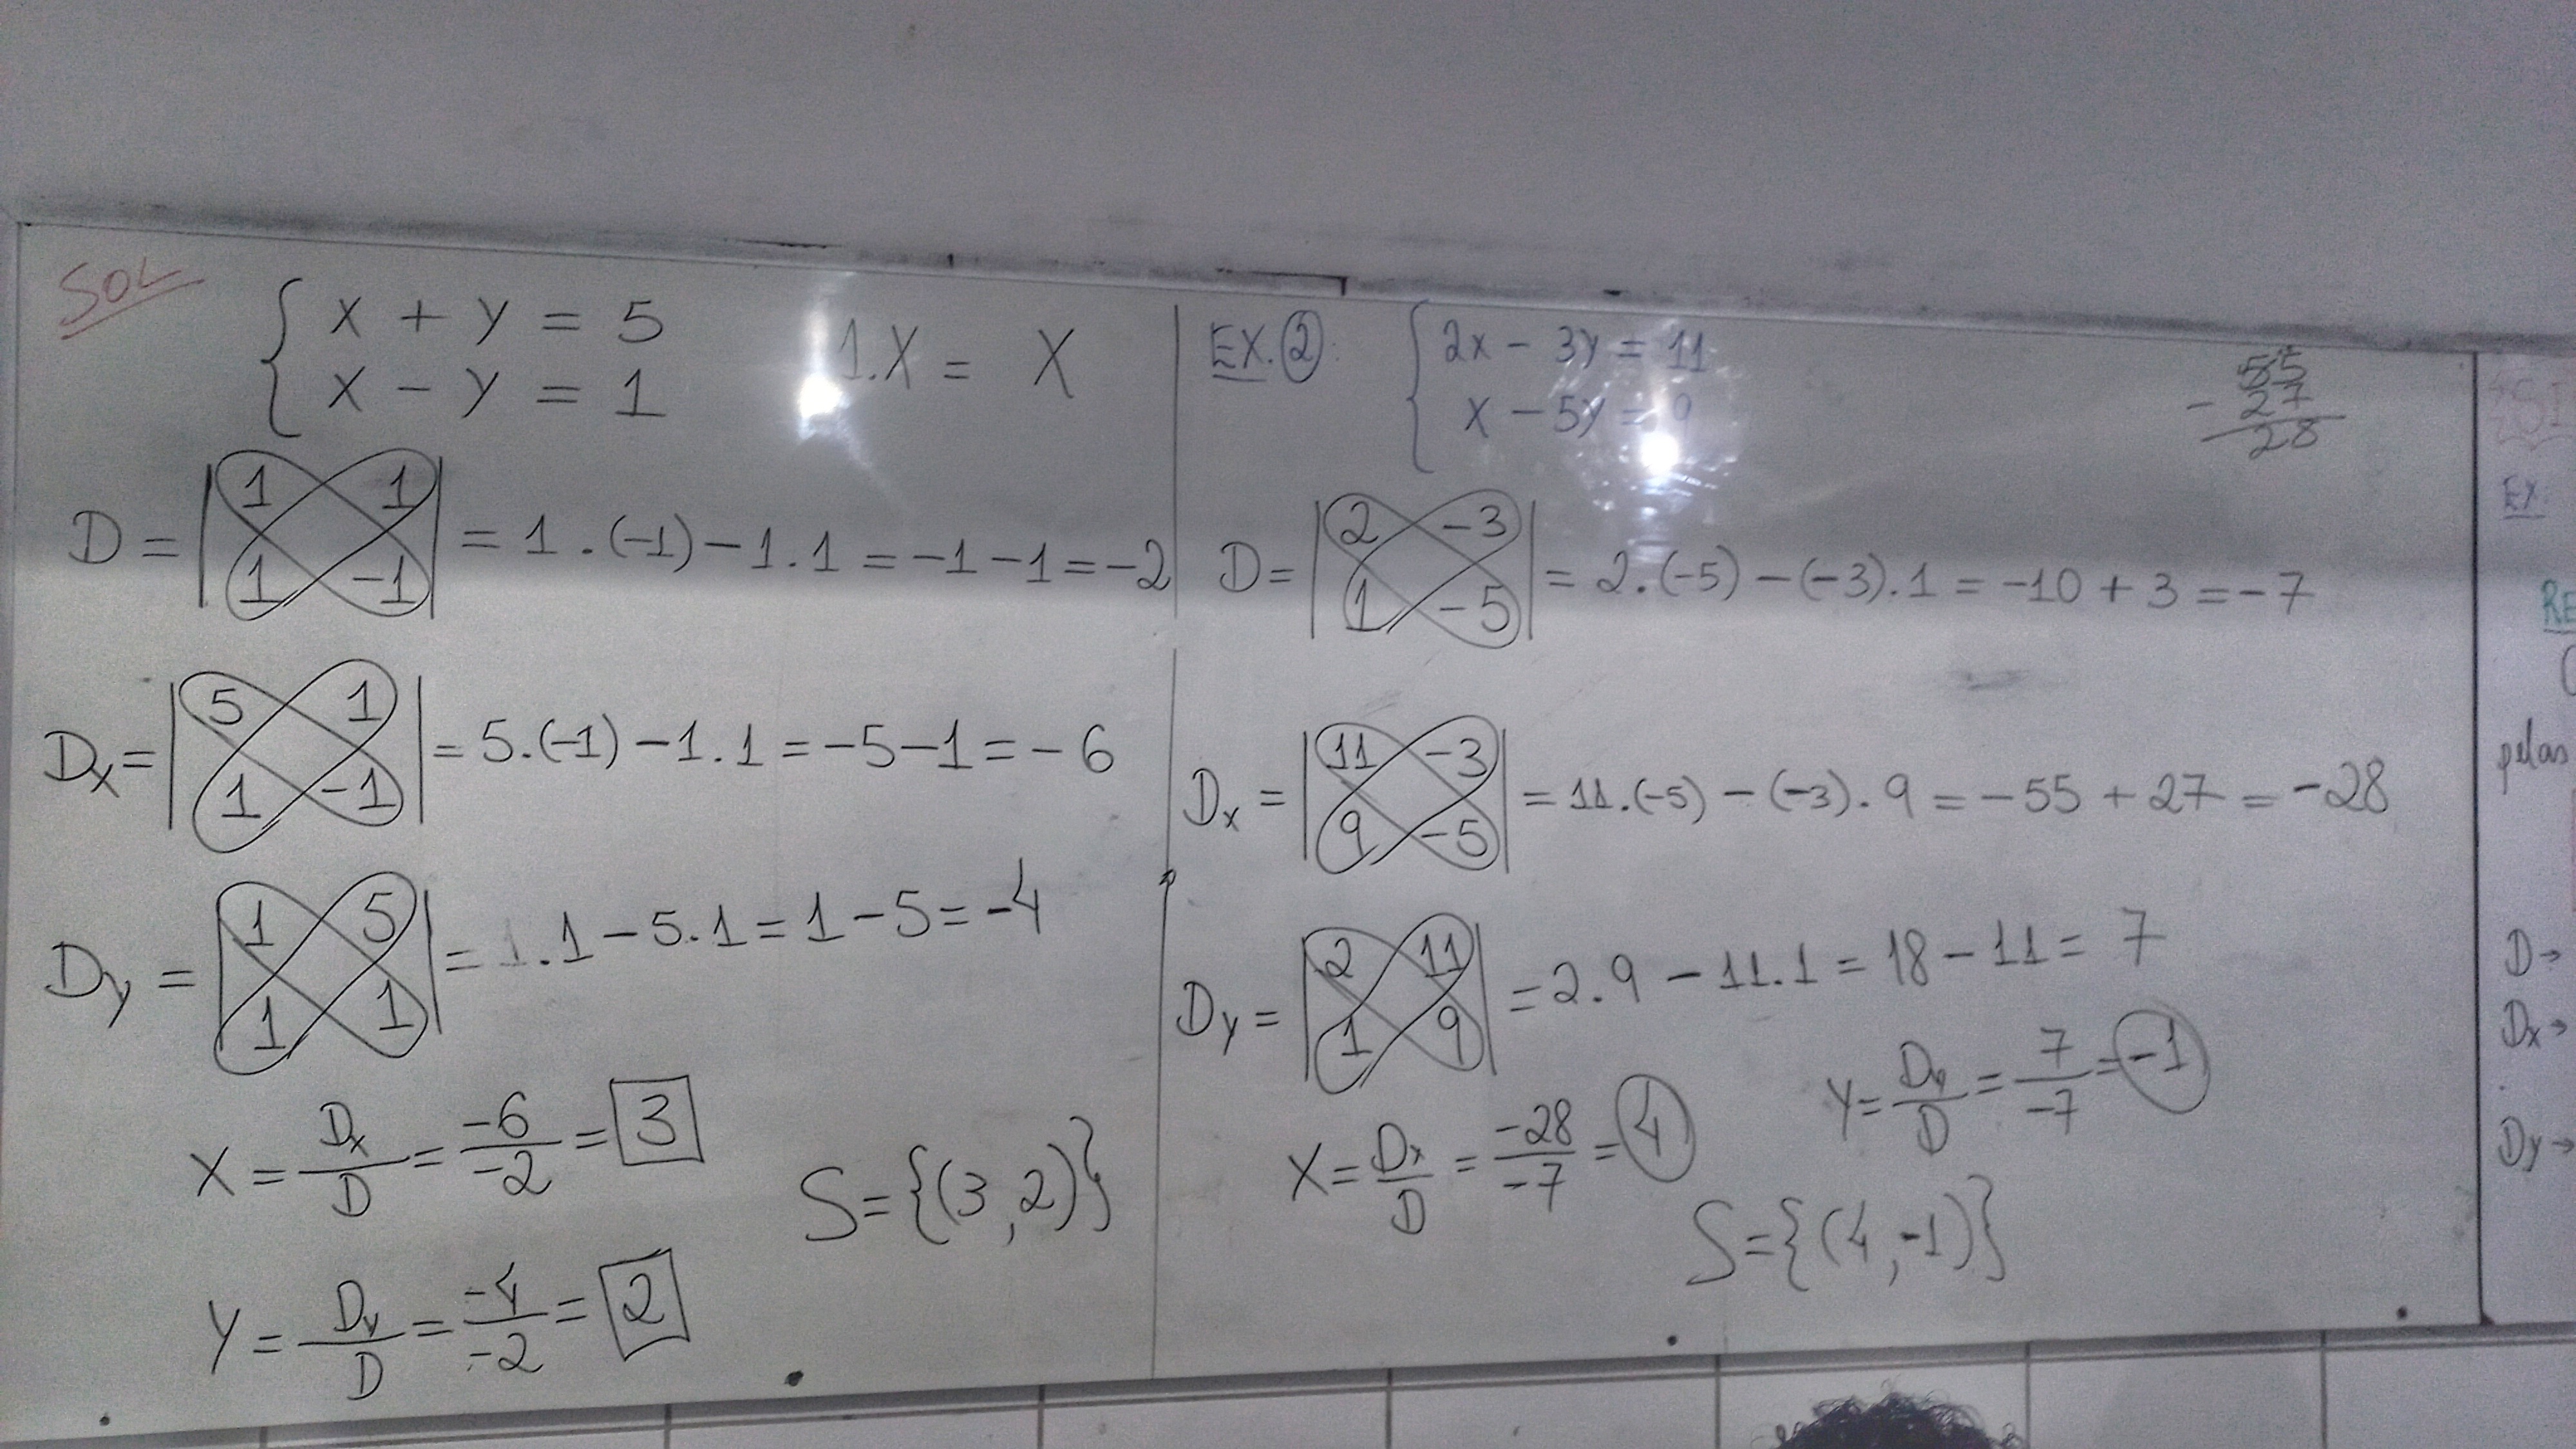 SOL
{ x + y = 5
x - y = 1
1.X = X
D = | 1 1 |
| 1 -1 | = 1.(-1) - 1.1 = -1 - 1 = -2
Dx = | 5 1 |
| 1 -1 | = 5.(-1) - 1.1 = -5 - 1 = -6
Dy = | 1 5 |
| 1 1 | = 1.1 - 5.1 = 1 - 5 = -4
X = Dx/D = -6/-2 = 3
Y = Dy/D = -4/-2 = 2
S = {(3,2)}
EX. 2:
{ 2x - 3y = 11
x - 5y = 9
55
- 27
28
D = | 2 -3 |
| 1 -5 | = 2.(-5) - (-3).1 = -10 + 3 = -7
Dx = | 11 -3 |
| 9 -5 | = 11.(-5) - (-3).9 = -55 + 27 = -28
Dy = | 2 11 |
| 1 9 | = 2.9 - 11.1 = 18 - 11 = 7
X = Dx/D = -28/-7 = 4
Y = Dy/D = 7/-7 = -1
S = {(4,-1)}
EX:
RE
pelas
D→
Dx→
Dy→